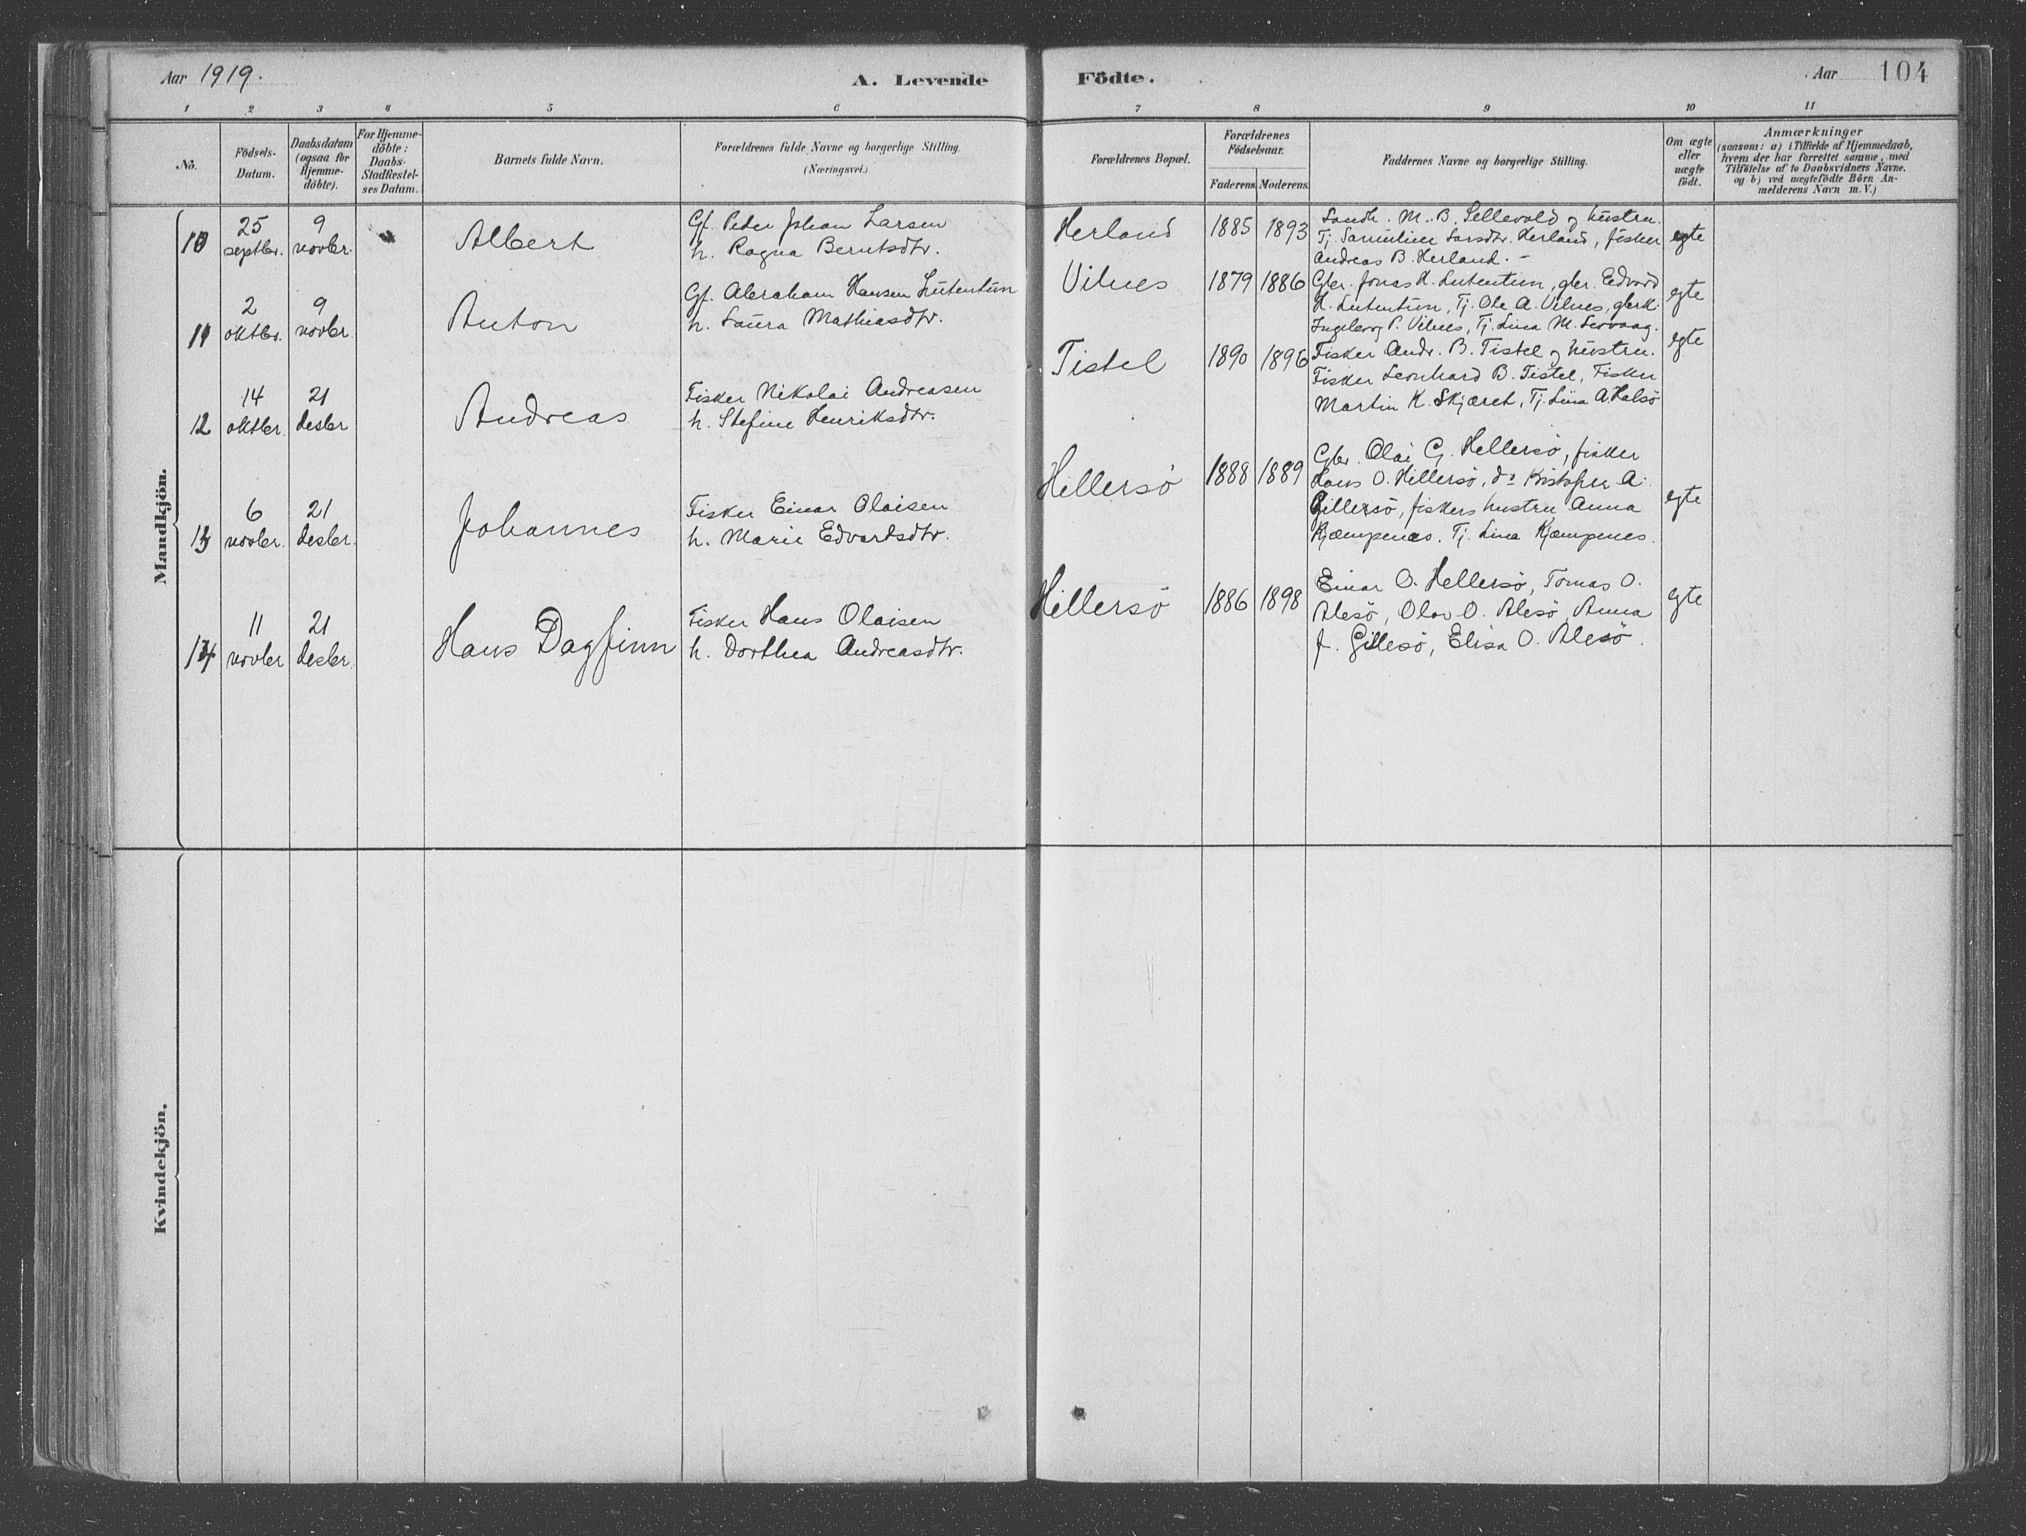 Aar 1919.
A. Levende Födte.
Aar 104
1 2 3 4 5 6 7 8 9 10 11
No.
Födsels-
Datum.
Daabsdatum
(ogsaa för
Hjemme-
döbte).
For Hjemme-
döbte:
Daabs-
Stadfestel-
ses Datum.
Barnets fulde Navn.
Forældrenes fulde Navne og borgerlige Stilling.
(Næringsvei.)
Forældrenes Bopæl.
Forældrenes
Födselsaar.
Faderens. Moderens.
Faddernes Navne og borgerlige Stilling.
Om ægte
eller
uægte
födt.
Anmærkninger
(saasom: a) i Tilfælde af Hjemmedaab,
hvem der har forrettet samme, med
Tilföielse af to Daabsvidners Navne,
og b) ved uægtefödte Börn An-
melderens Navn m. V.)
Mandkjön.
10
25
septbr.
9
novbr.
Albert
Gf. Peder Johan Larsen
h. Ragna Berntsdtr.
Herland
1885 1893
Landh. M. B. Sellevold og hustru.
Tj. Samuline Larsdtr. Herland, fisker
Andreas B. Herland.
egte
11
2
oktbr.
9
novbr
Anton
Gf. Abraham Hansen Lutentun
h. Laura Mathiasdtr.
Vilnes
1879 1886
Gbr. Jonas H. Lutentun, gbr. Edvard
H. Lutentun, Tj. Ole A. Vilnes, gbrk.
Ingeborg P. Vilnes, Tj. Lina M. Servaag.
egte
12
14
oktbr.
21
desbr
Andreas
Fisker Nikolai Andreasen
h. Stefine Henriksdtr.
Tistel
1890 1896
Fisker Andr. B. Tistel og hustru.
Fisker Leonhard B. Tistel, Fisker
Martin K. Skjæret, Tj. Lina A Halsö
egte
13
6
novbr.
21
desbr.
Johannes
Fisker Einar Olaisen
h. Marie Edvardsdtr.
Hellersö
1888 1889
Gbr. Olai G. Hellersö, fisker
Hans O. Hellersö, do Kristofer A.
Gillersö, fiskers hustru Anna
Kjæmpenes. Tj. Lina Kjæmpenes.
egte
14
11
novbr
21
desbr.
Hans Dagfinn
Fisker Hans Olaisen
h. Dorthea Andreasdtr.
Hillersö
1886 1898
Einar O. Hellersö, Tomas O.
Alesö, Olav O. Alesö, Anna
J. Gillesö, Elisa O. Alesö.
egte
Kvindekjön.